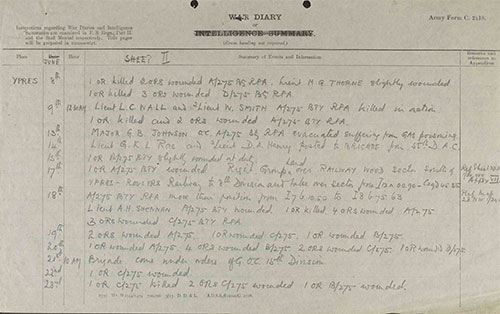 Instructions regarding War Diaries and Intelligence
Summaries are contained in F.S. Regs., Part II.
and the Staff Manual respectively. Title pages
will be prepared in manuscript.
WAR DIARY
OR
INTELLIGENCE SUMMARY.
(Erase heading not required.)
Army Form C. 2118.
SHEET II
Place
Date
Hour
Summary of Events and Information
Remarks and references to Appendices
JUNE
YPRES 8th 1 OR killed 2 ORS wounded A/275 Bty RFA. Lieut H.G. THORNE slightly wounded
1 OR killed 3 ORS wounded D/275 Bty RFA
9th Lieut L.C. NALL and 2Lieut N. SMITH A/275 BTY RFA killed in action
1 OR killed and 2 ORS wounded A/275 BTY RFA.
13th MAJOR G.B. JOHNSON O.C. A/275 Bty RFA evacuated suffering from GAS poisoning
14th Lieut G.K.L. Rae and 2Lieut D.L. Henry posted to BRIGADE from 55th D.A.C.
15th 1 OR B/275 BTY slightly wounded at duty.
17th 1 OR A/275 BTY wounded Right Group hand over RAILWAY WOOD Sector South of
YPRES - ROULERS Railway to 8th Division and take over Sector from
18th A/275 BTY RFA move their position from I7 to I8
Lieut A.H. A/275 BTY wounded 1 OR killed 4 ORS wounded A/275
3 ORS wounded C/275 BTY RFA
19th 2 ORS wounded A/275. 1 OR wounded C/275. 1 OR wounded B/275.
20th 1 OR wounded A/275. 4 ORS wounded B/275 2 ORS wounded C/275. 1 OR wounded D/275
21st 10 AM Brigade come under orders of G.O.C. 15th Division
22nd 1 OR C/275 wounded
23rd 1 OR C/275 killed 2 ORS C/275 wounded 1 OR B/275 wounded.